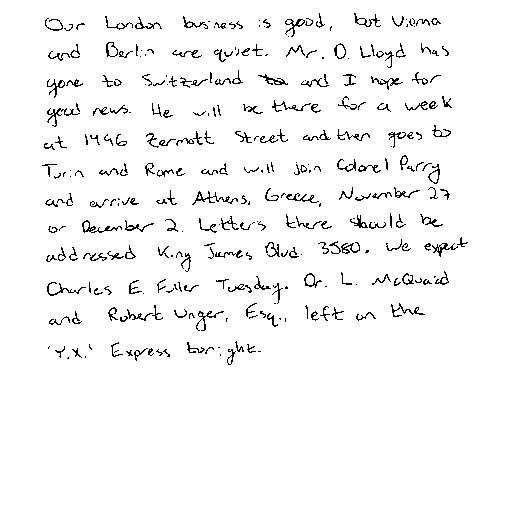 Our London business is good, but Vienna
and Berlin are quiet. Mr. D. Lloyd has
gone to Switzerland and I hope for
good news. He will be there for a week
at 1496 Zermott Street and then goes to
Turin and Rome and will join Colonel Parry
and arrive at Athens, Greece, November 27
or December 2. Letters there should be
addressed King James Blvd. 3580. We expect
Charles E. Fuller Tuesday. Dr. L. McQuaid
and Robert Unger, Esq., left on the
'Y.X.' Express tonight.